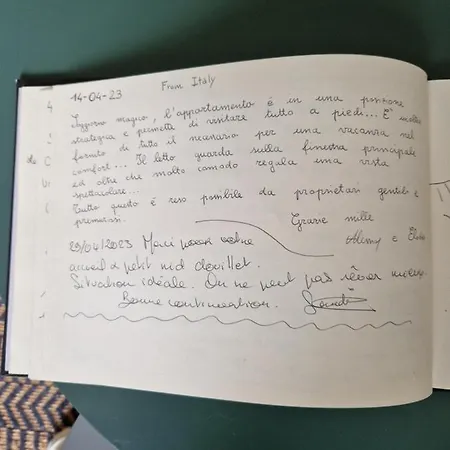 14-04-23 From Italy
Soggiorno magico, l'appartamento è in una posizione
strategica e permette di visitare tutto a piedi... È inoltre
fornito di tutto il necessario per una vacanza nel
comfort... Il letto guarda sulla finestra principale
ed oltre che molto comodo regala una vista
spettacolare...
Tutto questo è reso possibile da proprietari gentili e
premurosi.
Grazie mille
e
29/04/2023 Merci pour votre
accueil petit nid douillet.
Situation idéale. On ne peut pas rêver mieux.
Bonne continuation.